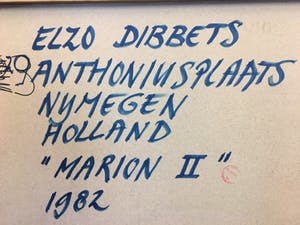 ELZO DIBBETS
ANTHONIUSPLAATS
NYMEGEN
HOLLAND
"MARION II"
1982